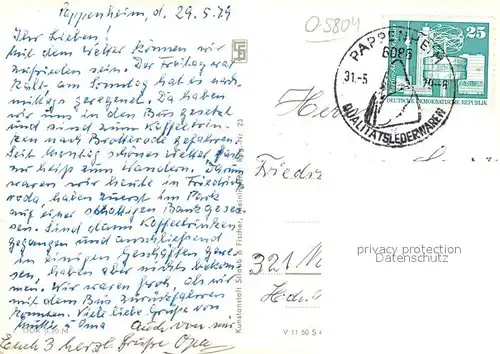 Pappenheim, d. 29.5.79
Ihr Lieben!
Mit dem Wetter können wir
zufrieden sein. Der Freitag war
kalt, am Sonntag hat es nach-
mittags geregnet. Da haben
wir uns in den Bus gesetzt
und sind zum Kaffeetrin-
ken nach Brotterode gefahren.
Seit Montag schönes Wetter, fast
zu heiß zum Wandern. Darum
waren wir heute in Friedrich
roda, haben zuerst im Park
auf einer schattigen Bank geses-
sen. Sind dann Kaffeetrinken
gegangen und anschließend
in einigen Geschäften gewe-
sen, haben aber nichts bekom-
men. Wir waren froh, als wir
mit dem Bus zurückfahren
konnten. Viele liebe Grüße von
Mutti u. Oma
Auch von mir
Euch 3 herzl. Grüße Opa
Kunstanstalt Straub & Fischer, Meiningen
Nr. 23
O-5804
PAPPENHEIM
6086
31.-5
79-8
QUALITÄTSLEDERWAREN
25
DEUTSCHE DEMOKRATISCHE REPUBLIK
Friedr
321
V 11 50 S
privacy protection
Datenschutz